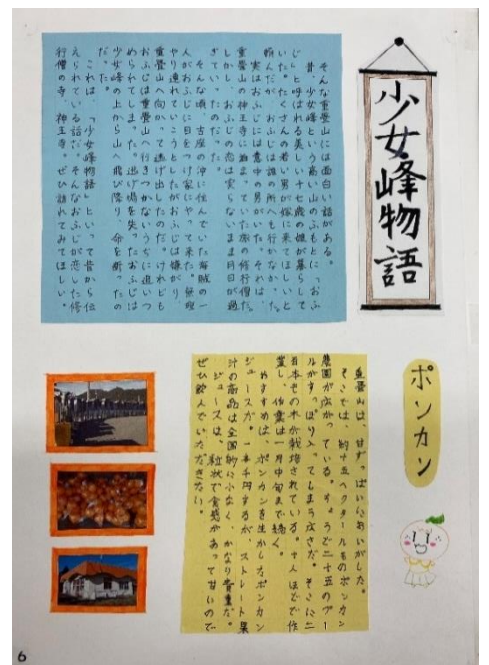 少女峰物語
そんな重畳山には面白い話がある。
昔、少女峰という高い山のふもとに、「おふ
じ」と呼ばれる美しい十七歳の娘が暮らして
いた。たくさんの若い男が嫁に来てほしいと
頼んだが、おふじは誰の所へも行かなかった。
実はおふじには意中の男がいた。それは、
重畳山の神王寺に泊まっていた旅の修行僧だ。
しかし、おふじの恋は実らないまま月日が過
ぎていったのだった。
そんな頃、古座の沖に住んでいた海賊の一
人がおふじに目をつけ家にやって来た。無理
やり連れていこうとしたがおふじは嫌がり、
重畳山へ向かって逃げ出したのだ。けれども
おふじは重畳山へ行きつかないうちに追いつ
められてしまった。逃げ場を失ったおふじは
少女峰の上から山へ飛び降り、命を断ったの
だった。
これは、「少女峰物語」といって昔から伝
えられている話だ。そんなおふじが恋した修
行僧の寺、神王寺。ぜひ訪れてみてほしい。
ポンカン
重畳山は、甘ずっぱいにおいがした。
そこでは、約十五ヘクタールものポンカン
農園が広がっている。ちょうど二十五のプー
ルがすっぽり入ってしまう広さだ。そこに二
百本もの木が栽培されている。十人ほどで作
業し、作業は一月中旬まで続く。
おすすめは、ポンカンを生かしたポンカン
ジュースだ。一本千円するが、ストレート果
汁の商品は全国的に少なく、かなり貴重だ。
ジュースは、粒状で食感があって甘いので
ぜひ飲んでいただきたい。
6